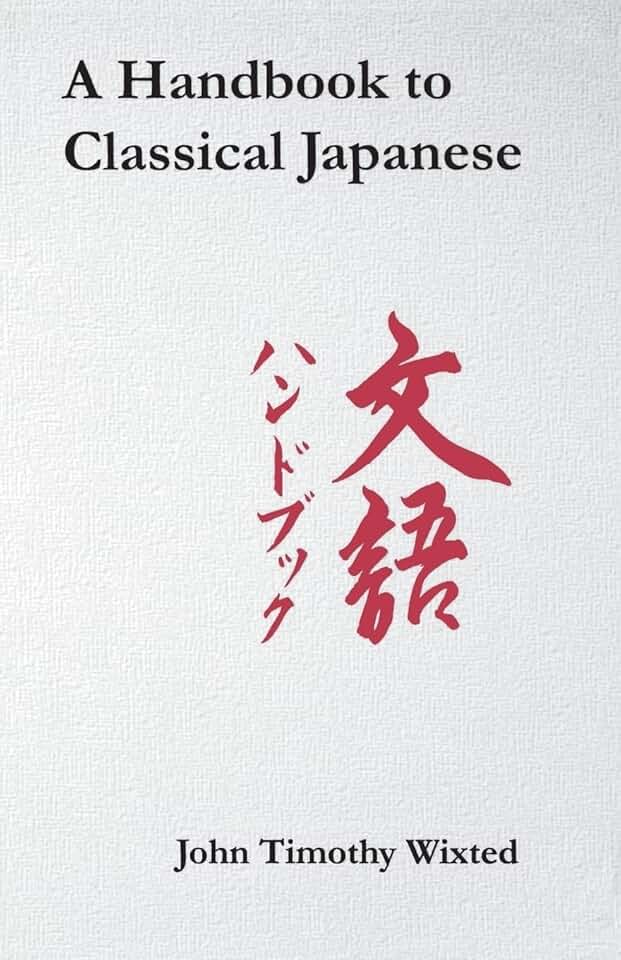 A Handbook to
Classical Japanese
文語
ハンドブック
John Timothy Wixted